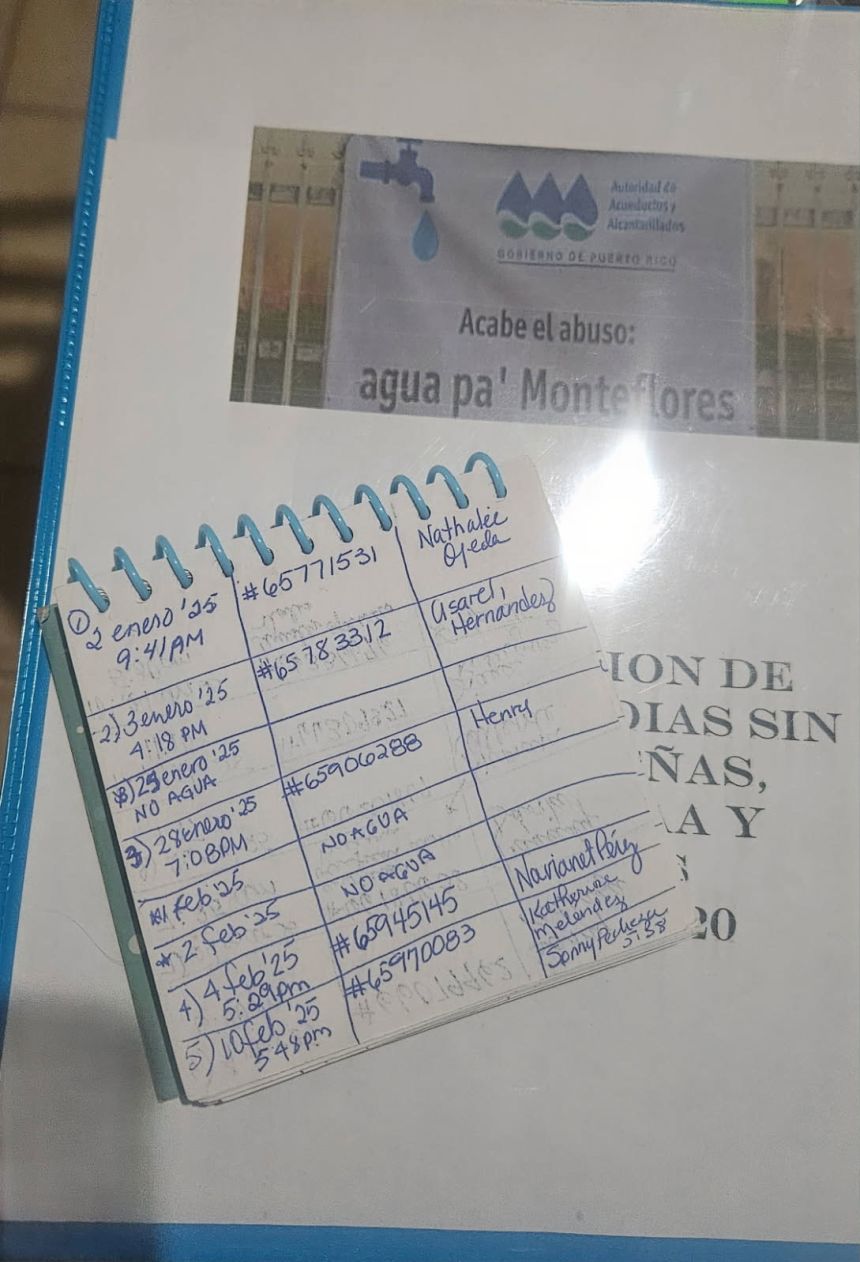 Autoridad de
Acueductos y
Alcantarillados
GOBIERNO DE PUERTO RICO
Acabe el abuso:
agua pa' Monteflores
ION DE
DIAS SIN
ÑAS,
A Y
S
20
① 2 enero '25 #65771531 Nathalie
9:41 AM Ojeda
2) 3 enero '25 #65783312 Asareli
4:18 PM Hernandez
25 enero '25
NO AGUA
3) 28 enero '25 #65906288 Henry
7:08 PM
*1 feb '25 NO AGUA
*2 feb '25 NO AGUA
4) 4 feb '25 #65945145 Navianet Pérez
5:29 pm Katherine
Melendez
5) 10 feb '25 #65970083 Sonny
5:48 pm 5:58